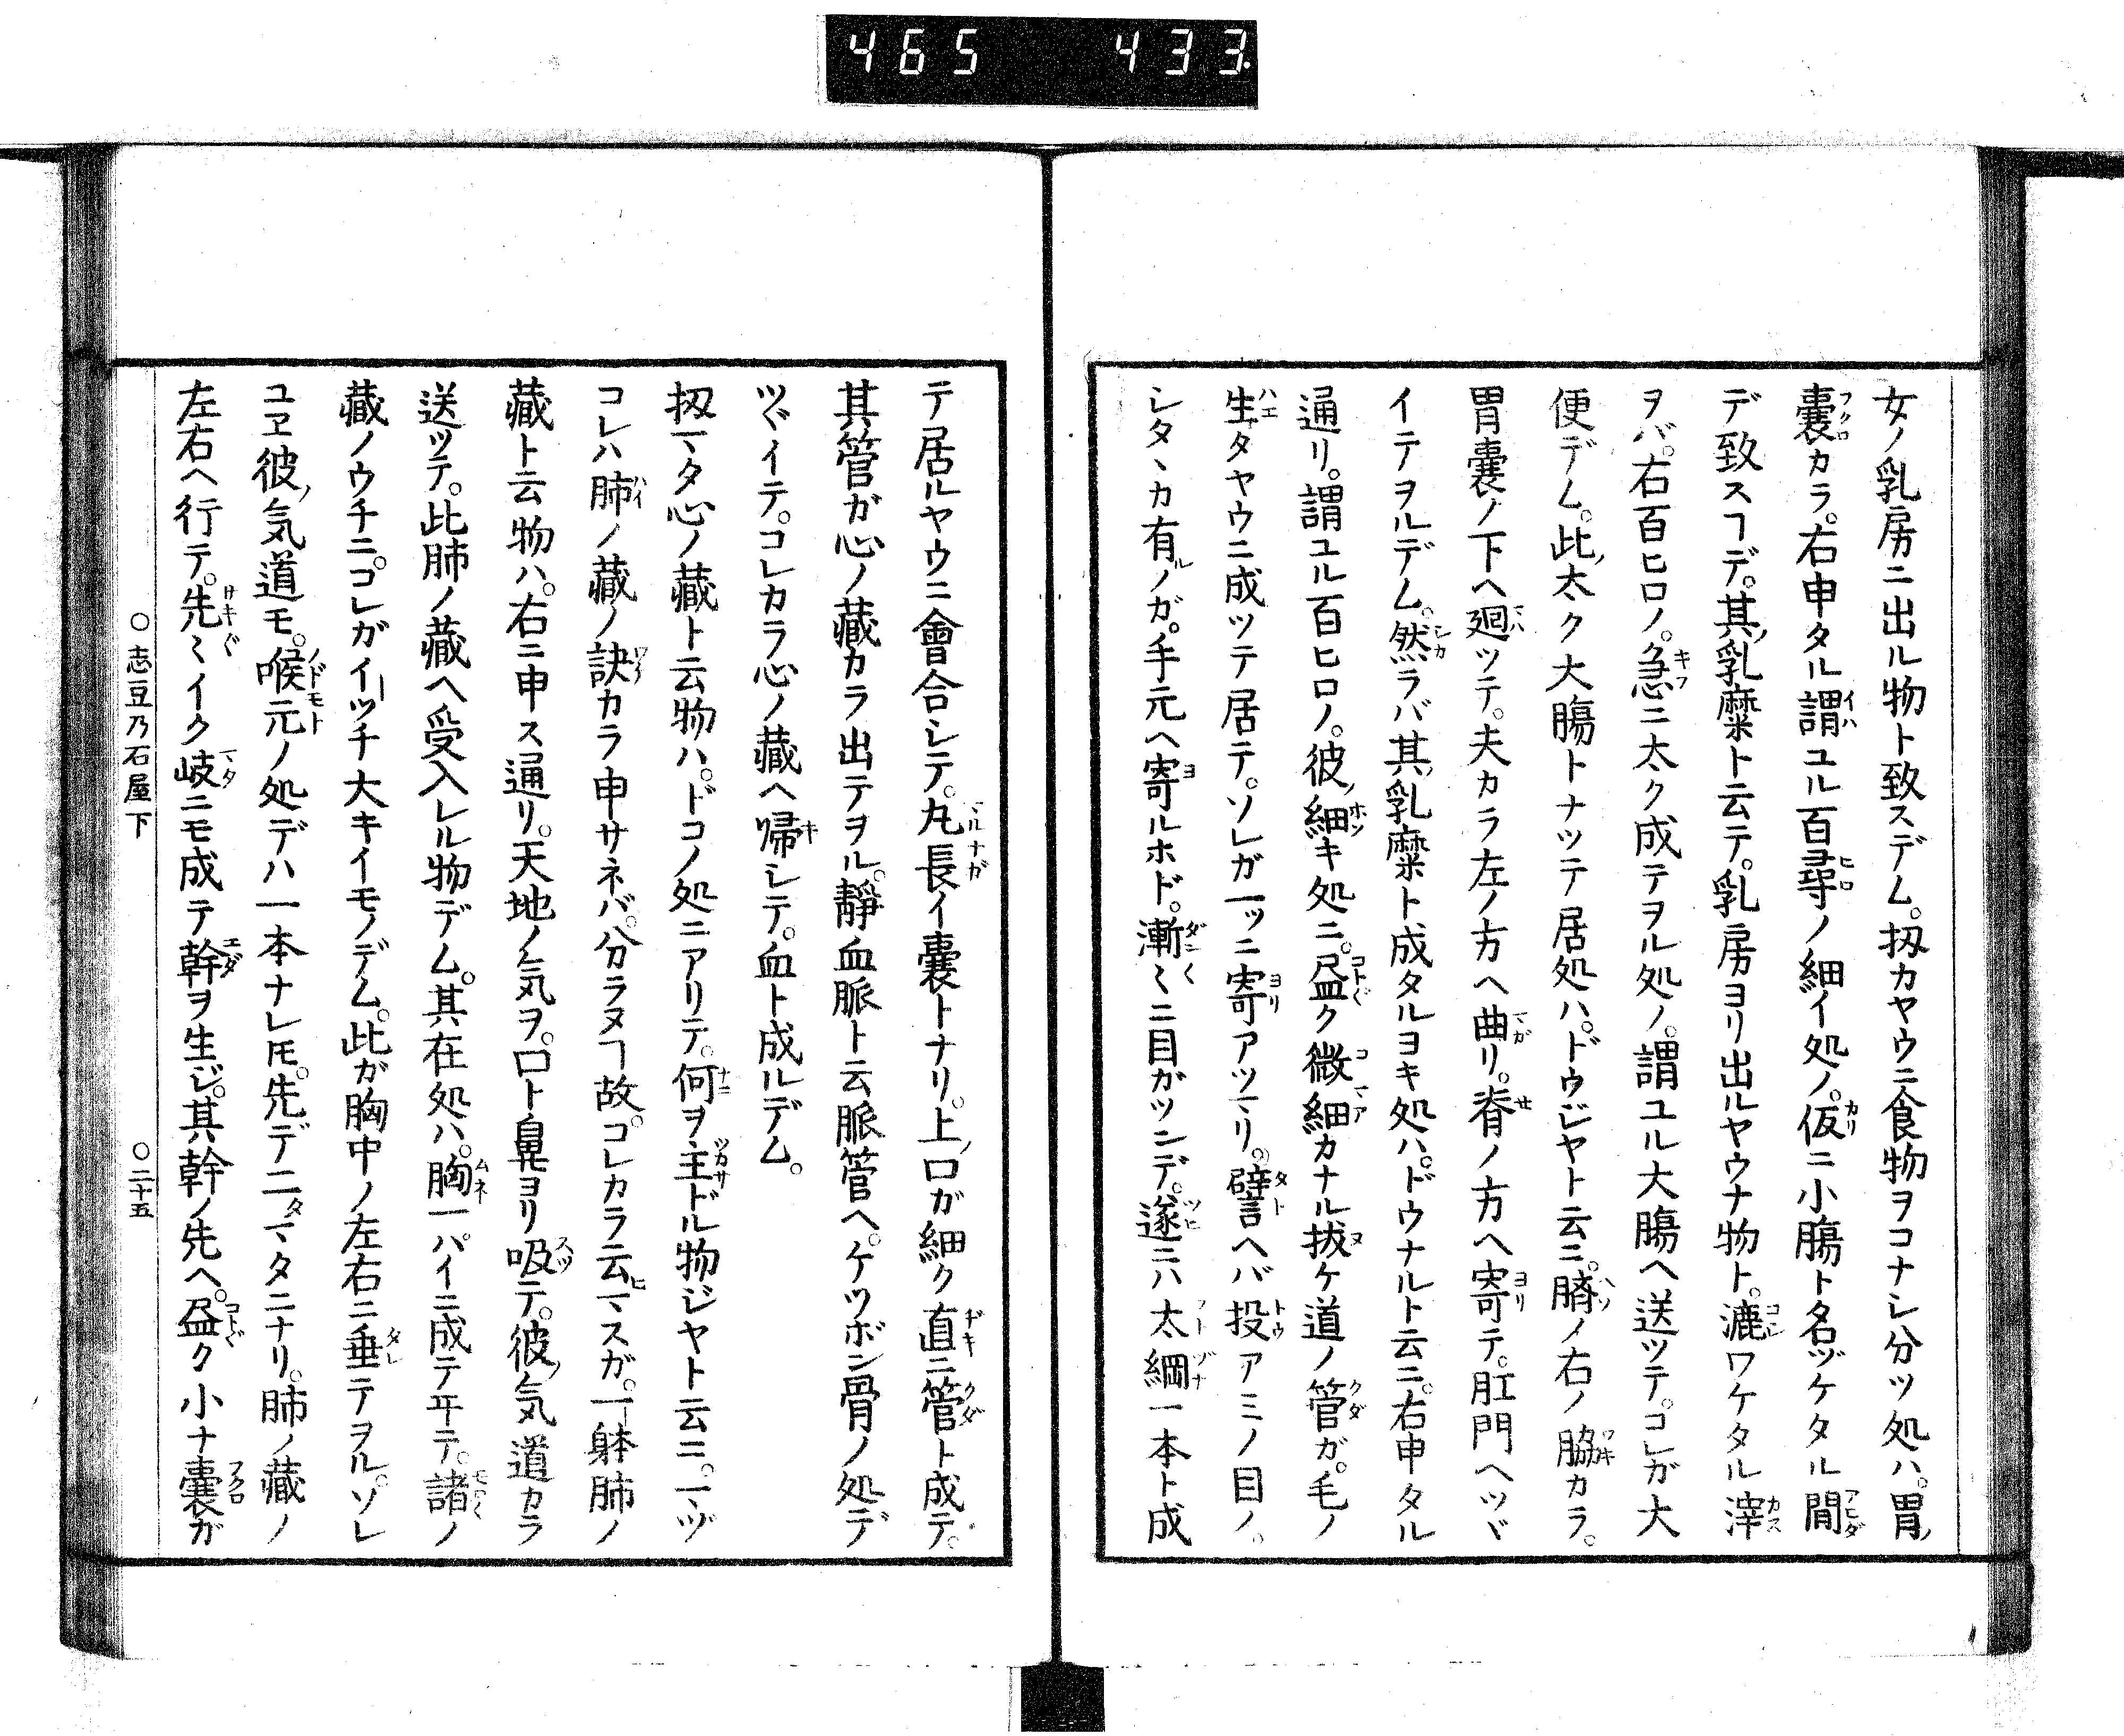 465 433.
女ノ乳房ニ出ル物ト致スデム。扨カヤウニ食物ヲコナシ分ツ処ハ。胃ノ
嚢カラ。右申タル謂ユル百尋ノ細イ処ノ。仮ニ小膓ト名ヅケタル間
デ致スヿデ。其ノ乳糜ト云テ。乳房ヨリ出ルヤウナ物ト。漉ワケタル滓
ヲバ。右百ヒロノ。急ニ太ク成テヲル処ノ。謂ユル大膓ヘ送ツテ。コレガ大
便デム。此ノ太ク大膓トナツテ居処ハ。ドウジヤト云ニ。臍ノ右ノ脇カラ。
胃嚢ノ下ヘ廻ツテ。夫カラ左ノ方ヘ曲リ。脊ノ方ヘ寄テ。肛門ヘツヾ
イテヲルデム。然ラバ其ノ乳糜ト成タルヨキ処ハ。ドウナルト云ニ。右申タル
通リ。謂ユル百ヒロノ。彼ノ細キ処ニ。盡ク微細カナル抜ケ道ノ管ガ。毛ノ
生タヤウニ成ツテ居テ。ソレガ一ツニ寄アツマリ。譬ヘバ投アミノ目ノ。
シタヽカ有ルノガ。手元ヘ寄ルホド。漸〻ニ目ガツンデ。遂ニハ太綱一本ト成
テ居ルヤウニ會合シテ。丸長イ嚢トナリ。上ノ口ガ細ク直ニ管ト成テ。
其管ガ心ノ藏カラ出テヲル。靜血脈ト云脈管ヘ。ケツボン骨ノ処デ
ツヾイテ。コレカラ心ノ藏ヘ帰シテ。血ト成ルデム。
扨マタ心ノ藏ト云物ハ。ドコノ処ニアリテ。何ヲ主ドル物ジヤト云ニ。マヅ
コレハ肺ノ藏ノ訣カラ申サネバ。分ラヌヿ故。コレカラ云マスガ。一躰肺ノ
藏ト云物ハ。右ニ申ス通リ。天地ノ気ヲ。口ト鼻ヨリ吸テ。彼ノ気道カラ
送ツテ。此肺ノ藏ヘ受入レル物デム。其在処ハ。胸一パイニ成テ平テ。諸ノ
藏ノウチニ。コレガイツチ大キイモノデム。此ガ胸中ノ左右ニ垂テヲル。ソレ
ユヱ彼ノ気道モ。喉元ノ処デハ一本ナレ𪜈。先デ二タマタニナリ。肺ノ藏ノ
左右ヘ行テ。先〻イク岐ニモ成テ幹ヲ生ジ。其幹ノ先ヘ。盡ク小ナ嚢ガ
○志豆乃石屋下 ○二十五